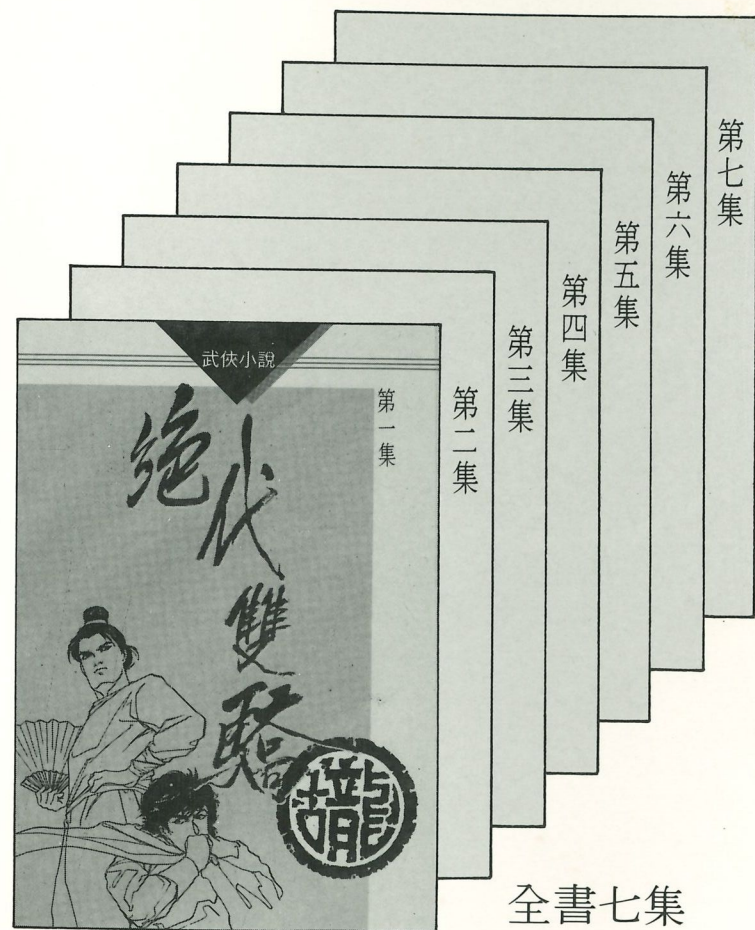 武俠小說
第一集
絕代雙驕
古龍
第二集
第三集
第四集
第五集
第六集
第七集
全書七集